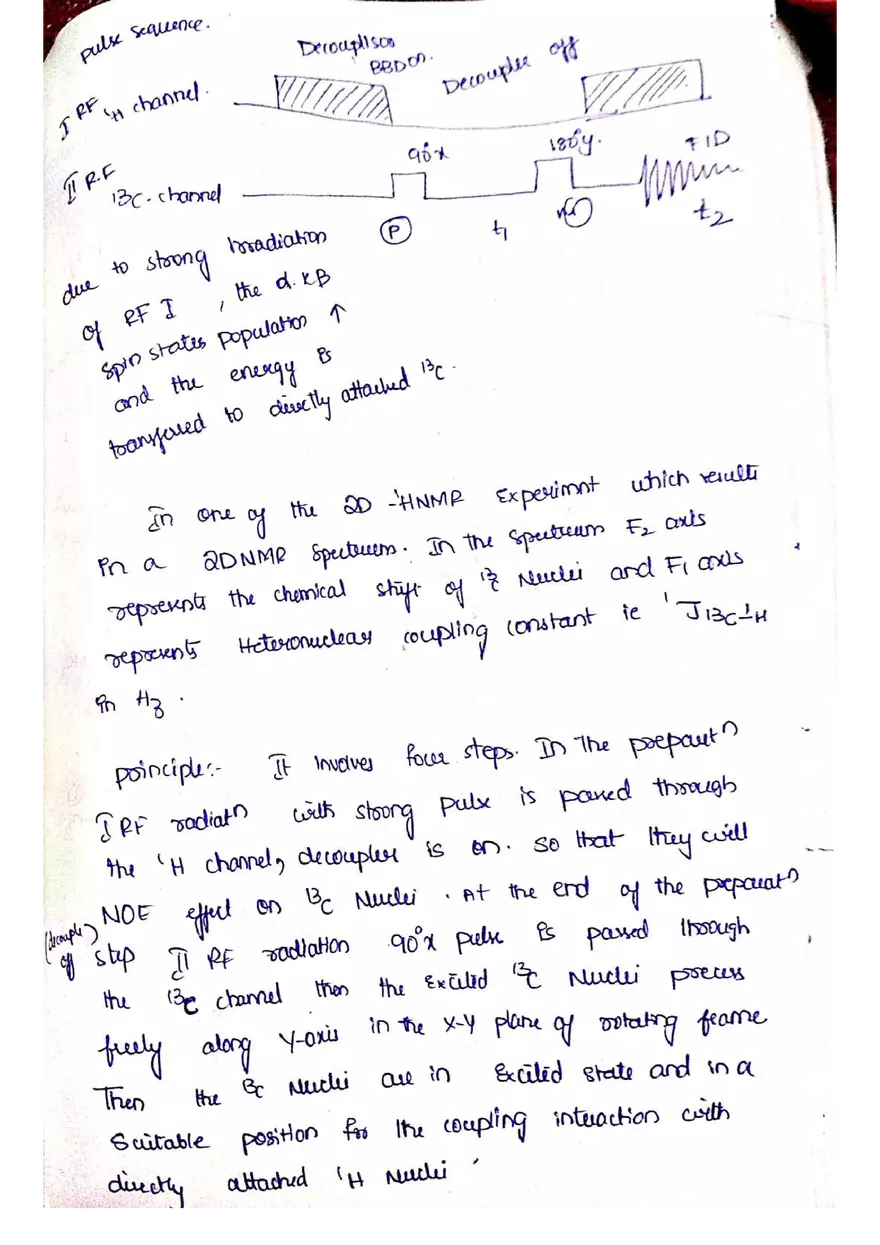 pulse sequence.
Decouplison
BBD on.
Decouple off
I RF ¹H channel.
90°x
180°y.
FID
II R.F
13C-channel
P
t₁
t₂
due to strong Irradiation
of RF I, the α & β
spin states population ↑
and the energy is
transfered to directly attached ¹³C.
In one of the 2D -¹HNMR Experimnt which results
in a 2DNMR Spectrum. In the spectrum F₂ axis
represents the chemical shift of ¹³C Nuclei and F₁ axis
represents Heteronuclear coupling constant ie ¹J13C-¹H
in Hz.
principle:- It involves four steps. In The preparatⁿ
I RF radiatⁿ with strong pulse is passed through
the ¹H channel, decoupler is on. so that they will
NOE effect on ¹³C Nuclei. At the end of the preparatⁿ
(decouple)
off step II RF radiation 90°x pulse is passed through
the ¹³C channel then the Excited ¹³C Nuclei process
freely along Y-axis in the X-Y plane of rotating frame
Then the ¹³C Nuclei are in Excited state and in a
Suitable position for the coupling interaction with
directly attached ¹H Nuclei